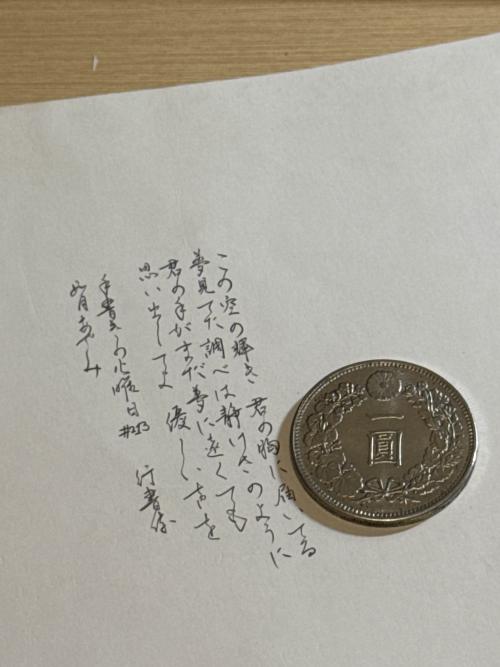 この空の輝き 君の胸に届いてる
夢見てた調べは静けさのように
君の手がまだ夢に遠くても
思い出してよ 優しい声を
手書きの火曜日 #253 行書体
如月あやみ
一圓